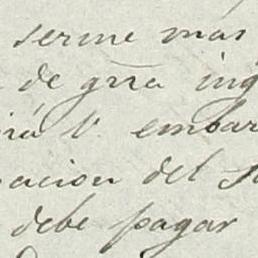 serme mas
de grra ing
irá V. embar
acion del
debe pagar